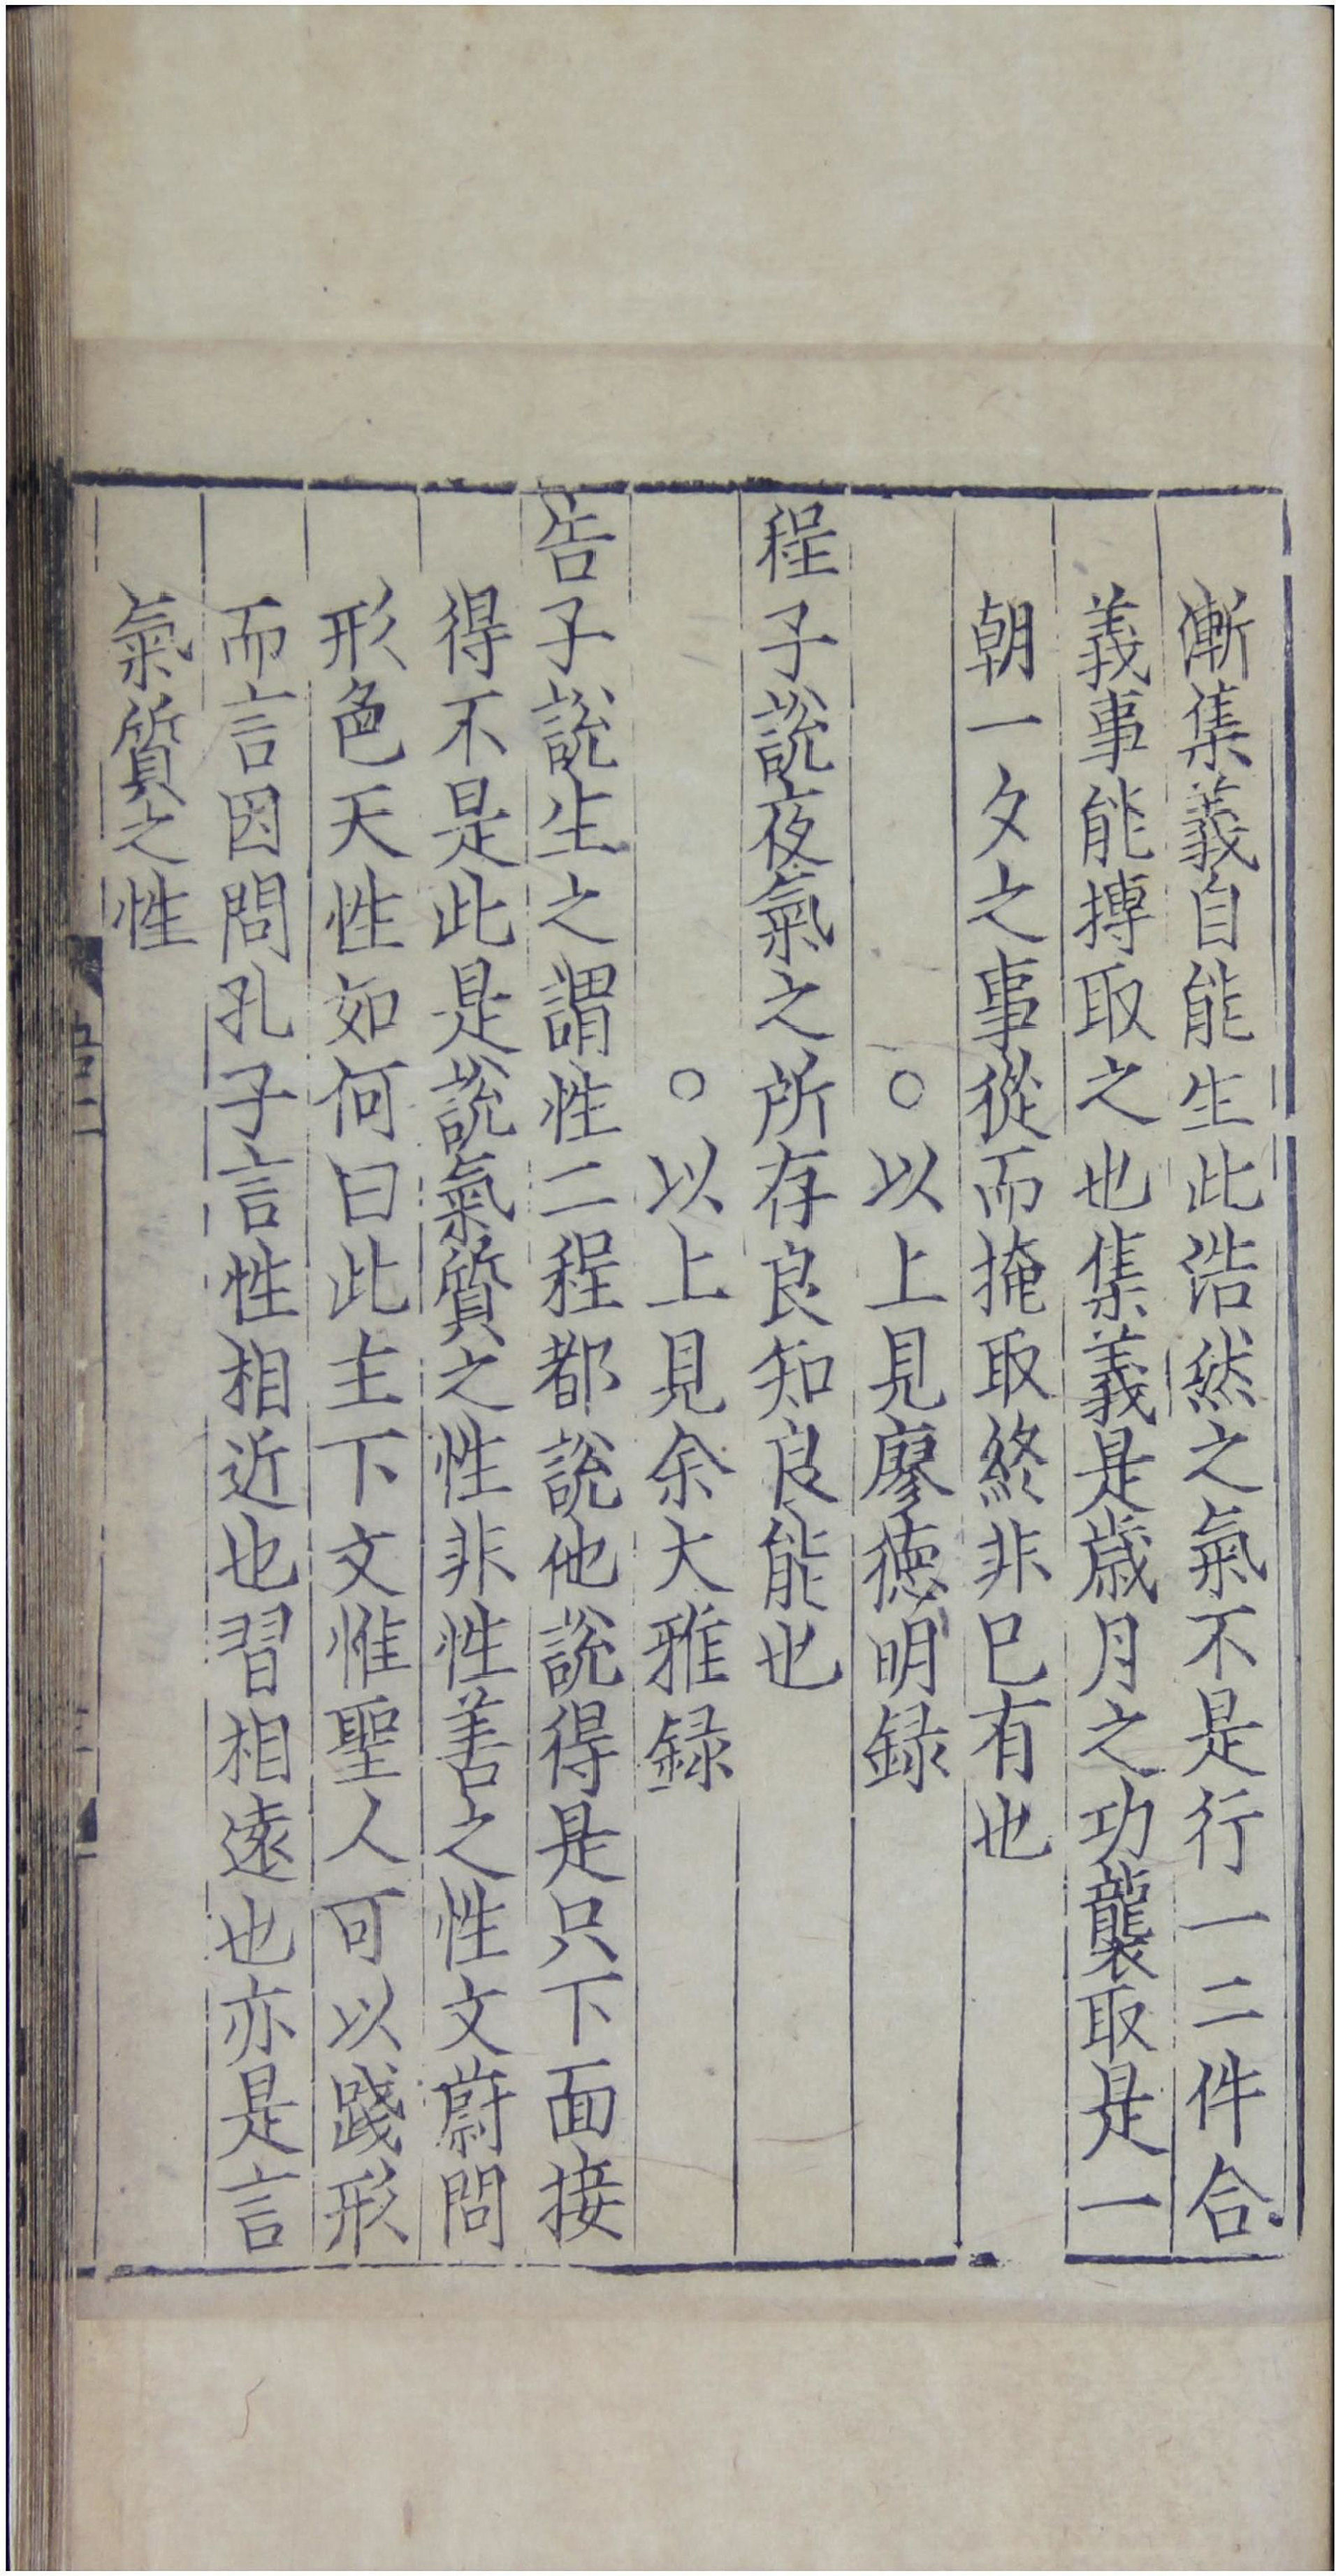 漸集義自能生此浩然之氣不是行一二件合
義事能摶取之也集義是歲月之功襲取是一
朝一夕之事從而掩取終非巳有也
○以上見廖德明録
程子說夜氣之所存良知良能也
○以上見余大雅録
告子說生之謂性二程都說他說得是只下面接
得不是此是說氣質之性非性善之性文蔚問
形色天性如何曰此主下文惟聖人可以踐形
而言因問孔子言性相近也習相遠也亦是言
氣質之性